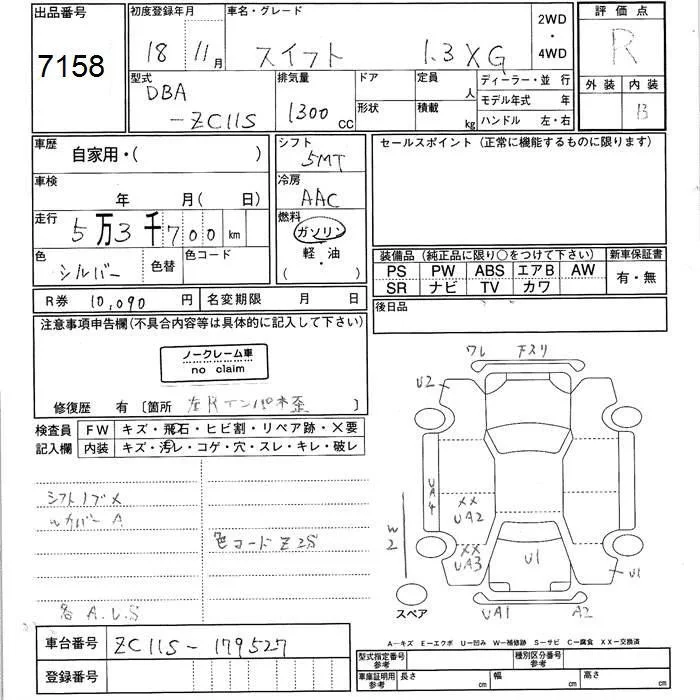 出品番号
7158
初度登録年月
18年 11月
車名・グレード
スイフト 1.3XG
2WD
・
4WD
評価点
R
外装 内装
B
型式
DBA
-ZC11S
排気量
1300 CC
ドア
形状
定員
人
積載
kg
ディーラー・並行
モデル年式 年
ハンドル 左・右
車歴
自家用・( )
シフト
5MT
セールスポイント (正常に機能するものに限ります)
車検
年 月( 日)
冷房
AAC
走行
5万3千700 km
燃料
ガソリン
軽・油
( )
色
シルバー
色替
色コード
装備品 (純正品に限り○をつけて下さい)
新車保証書
PS PW ABS エアB AW
有・無
SR ナビ TV カワ
R券 10,090 円
名変期限 月 日
後日品
注意事項申告欄(不具合内容等は具体的に記入して下さい)
ノークレーム車
no claim
修復歴 有 [箇所 左Rインパネ歪 ]
検査員
記入欄
FW キズ・飛石・ヒビ割・リペア跡・×要
内装 キズ・汚レ・コゲ・穴・スレ・キレ・破レ
シフトノブ×
〃カバーA
色コードZ2S
各A.U.S
ワレ 下スリ
U2
UA4
XX
UA2
W2
XX
UA3
U1
U1
スペア
UA1
A2
車台番号
ZC11S-179527
登録番号
A-キズ E-エクボ U-凹み W-補修跡 S-サビ C-腐食 XX-交換済
型式指定番号
参考
種別区分番号
参考
車庫証明用
参考
長さ cm
幅 cm
高さ cm